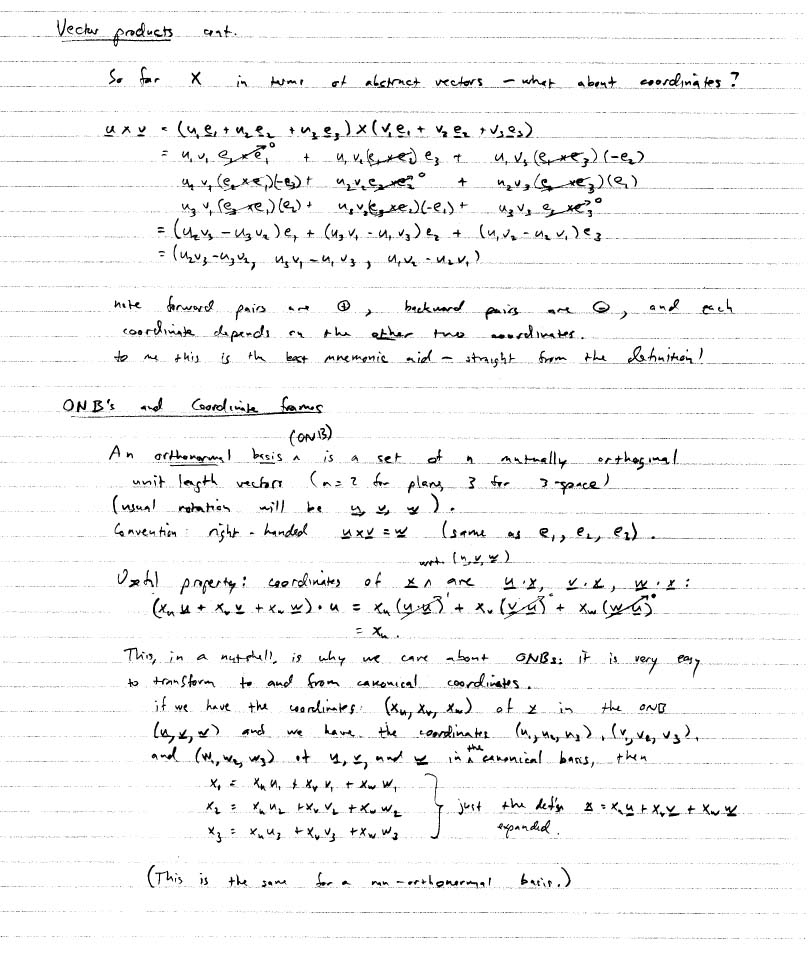 Vector products cont.
So far × in terms of abstract vectors – what about coordinates?
u × v = (u₁e₁ + u₂e₂ + u₃e₃) × (v₁e₁ + v₂e₂ + v₃e₃)
= u₁v₁ e₁×e₁ 0 + u₁v₂(e₁×e₂) e₃ + u₁v₃(e₁×e₃)(-e₂)
u₂v₁(e₂×e₁)(-e₃) + u₂v₂ e₂×e₂ 0 + u₂v₃(e₂×e₃)(e₁)
u₃v₁(e₃×e₁)(e₂) + u₃v₂(e₃×e₂)(-e₁) + u₃v₃ e₃×e₃ 0
= (u₂v₃ - u₃v₂)e₁ + (u₃v₁ - u₁v₃)e₂ + (u₁v₂ - u₂v₁)e₃
= (u₂v₃ - u₃v₂, u₃v₁ - u₁v₃, u₁v₂ - u₂v₁)
note forward pairs are ⊕, backward pairs are ⊖, and each
coordinate depends on the other two coordinates.
to me this is the best mnemonic aid – straight from the definition!
ONB's and Coordinate frames
An orthonormal basis ^ (ONB) is a set of n mutually orthogonal
unit length vectors (n=2 for plane, 3 for 3-space)
(usual notation will be u, v, w).
Convention: right-handed u×v = w (same as e₁, e₂, e₃).
Useful property: coordinates of x ^ wrt. (u,v,w) are u·x, v·x, w·x:
(xᵤu + xᵥv + x_w w)·u = xᵤ(u·u) 1 + xᵥ(v·u) 0 + x_w(w·u) 0
= xᵤ.
This, in a nutshell, is why we care about ONBs: it is very easy
to transform to and from canonical coordinates.
if we have the coordinates (xᵤ, xᵥ, x_w) of x in the ONB
(u,v,w) and we have the coordinates (u₁,u₂,u₃), (v₁,v₂,v₃),
and (w₁,w₂,w₃) of u, v, and w in ^ the canonical basis, then
x₁ = xᵤu₁ + xᵥv₁ + x_w w₁
x₂ = xᵤu₂ + xᵥv₂ + x_w w₂ } just the def'n x = xᵤu + xᵥv + x_w w
x₃ = xᵤu₃ + xᵥv₃ + x_w w₃ expanded.
(This is the same for a non-orthonormal basis.)